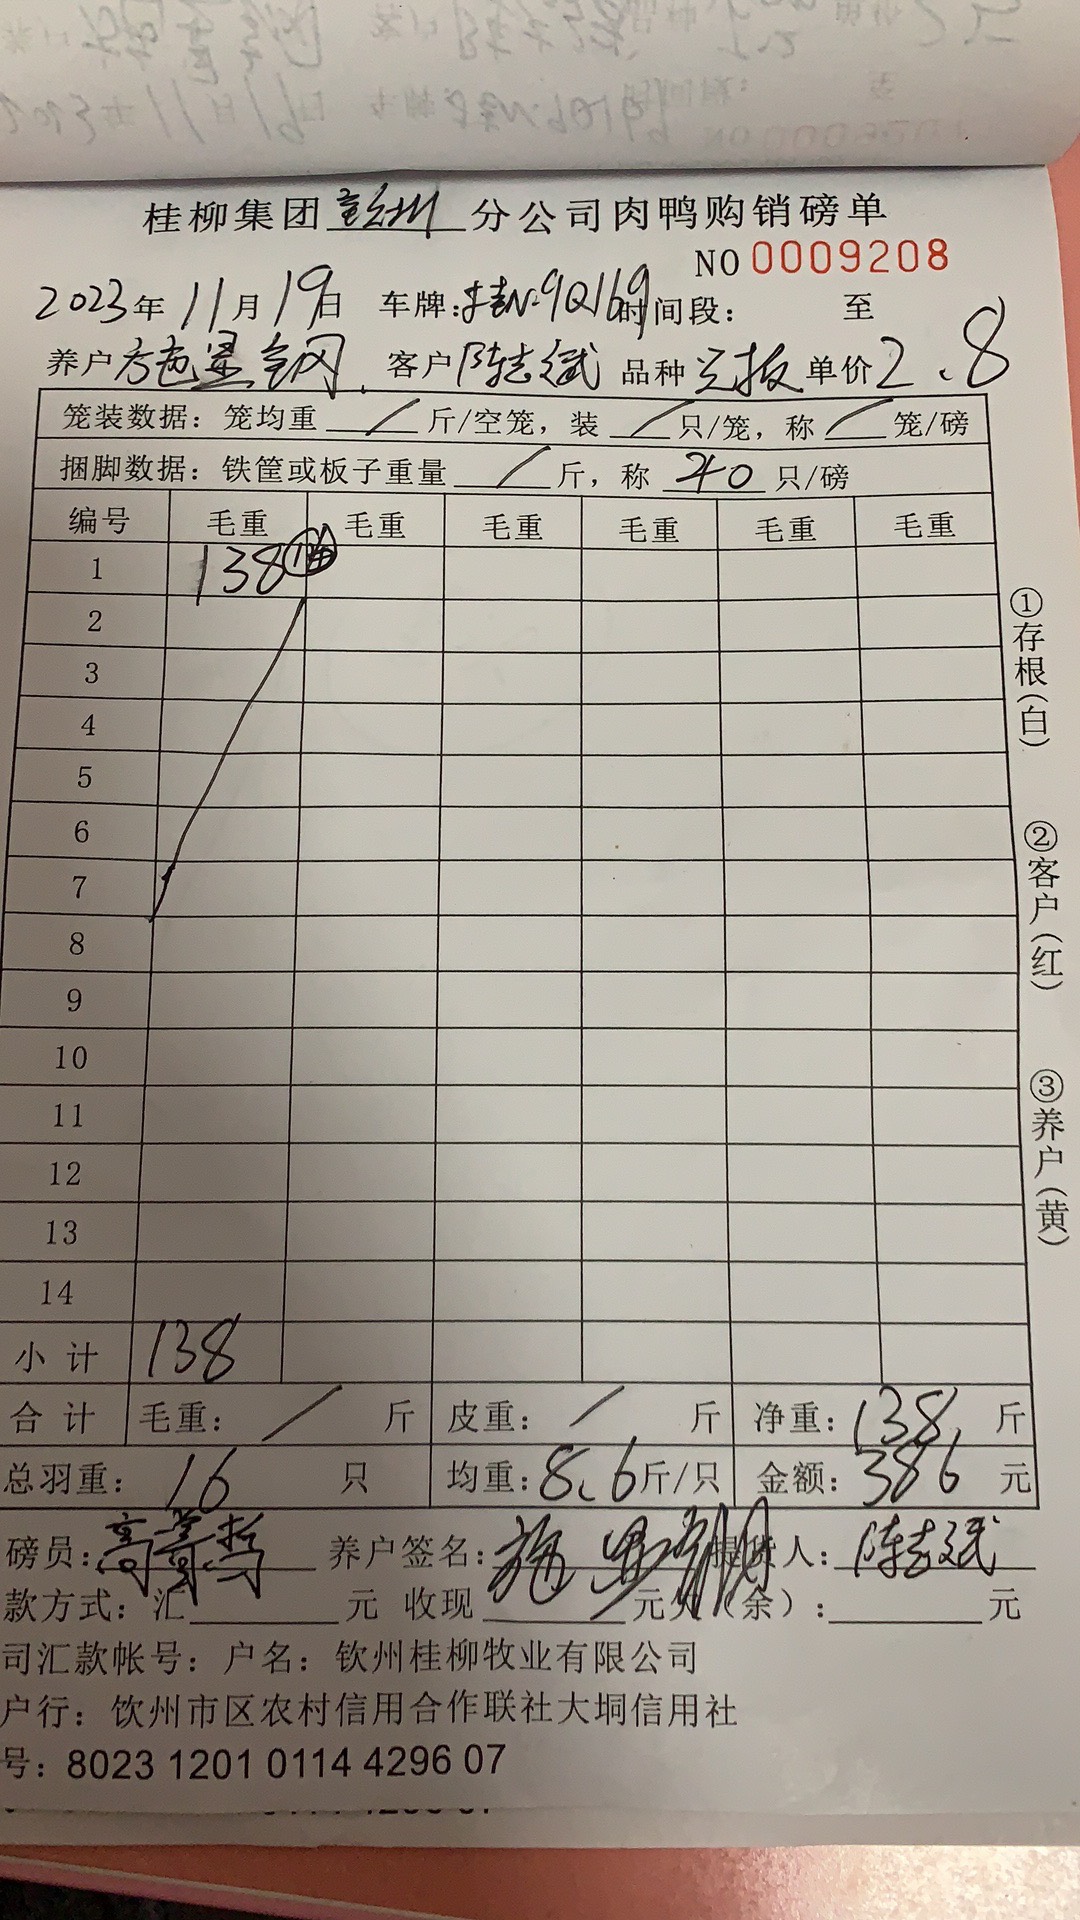 桂柳集团钦州分公司肉鸭购销磅单
NO 0009208
2023年11月19日 车牌:桂N·9Q169 时间段: 至
养户 客户陈志斌 品种 单价2.8
笼装数据: 笼均重 / 斤/空笼, 装 / 只/笼, 称 / 笼/磅
捆脚数据: 铁筐或板子重量 / 斤, 称 40 只/磅
编号 毛重 毛重 毛重 毛重 毛重 毛重
1 138
2
3
4
5
6
7
8
9
10
11
12
13
14
小计 138
合计 毛重: / 斤 皮重: / 斤 净重: 138 斤
总羽重: 16 只 均重: 8.6斤/只 金额: 386 元
磅员: 养户签名: 提货人: 陈志斌
款方式: 汇 元 收现 元 (余): 元
司汇款帐号: 户名: 钦州桂柳牧业有限公司
户行: 饮州市区农村信用合作联社大垌信用社
号: 8023 1201 0114 4296 07
①存根(白)
②客户(红)
③养户(黄)